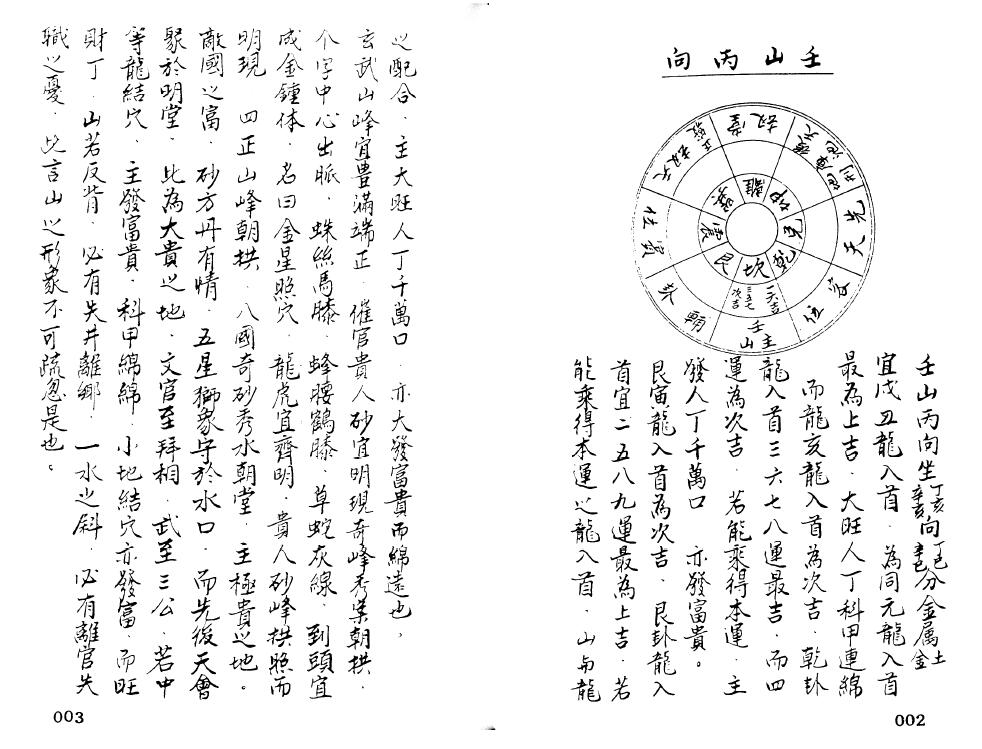 壬山丙向
劫堂
先天
客位
壬山主
輔卦
賓位
離
坤
兌
乾
坎
艮
震
巽
一六吉
次吉
壬山丙向坐丁亥辛亥向丁巳辛巳分金屬土金
宜戌丑龍入首．為同元龍入首
最為上吉．大旺人丁科甲連綿
而龍亥龍入首為次吉．乾卦
龍入首三六七八運最吉．而四
運為次吉．若能乘得本運．主
發人丁千萬口 亦發富貴。
艮寅龍入首為次吉．艮卦龍入
首宜二五八九運最為上吉．若
能乘得本運之龍入首．山與龍
002
之配合．主大旺人丁千萬口 亦大發富貴而綿遠也．
玄武山峰宜豊滿端正．催官貴人砂宜明現奇峰秀案朝拱．
个字中心出脈．蛛絲馬膝．蜂腰鶴膝．草蛇灰線．到頭宜
成金鐘体．名曰金星照穴．龍虎宜齊明．貴人砂峰拱照而
明現 四正山峰朝拱．八國奇砂秀水朝堂．主極貴之地。
敵國之富．砂方丹有情．五星獅象守於水口．而先後天會
聚於明堂．此為大貴之地．文官至拜相．武至三公．若中
等龍結穴．主發富貴．科甲綿綿．小地結穴亦發富．而旺
財丁．山若反背．必有失井離鄉．一水之斜．必有離官失
職之憂．此言山之形象不可疏忽是也。
003